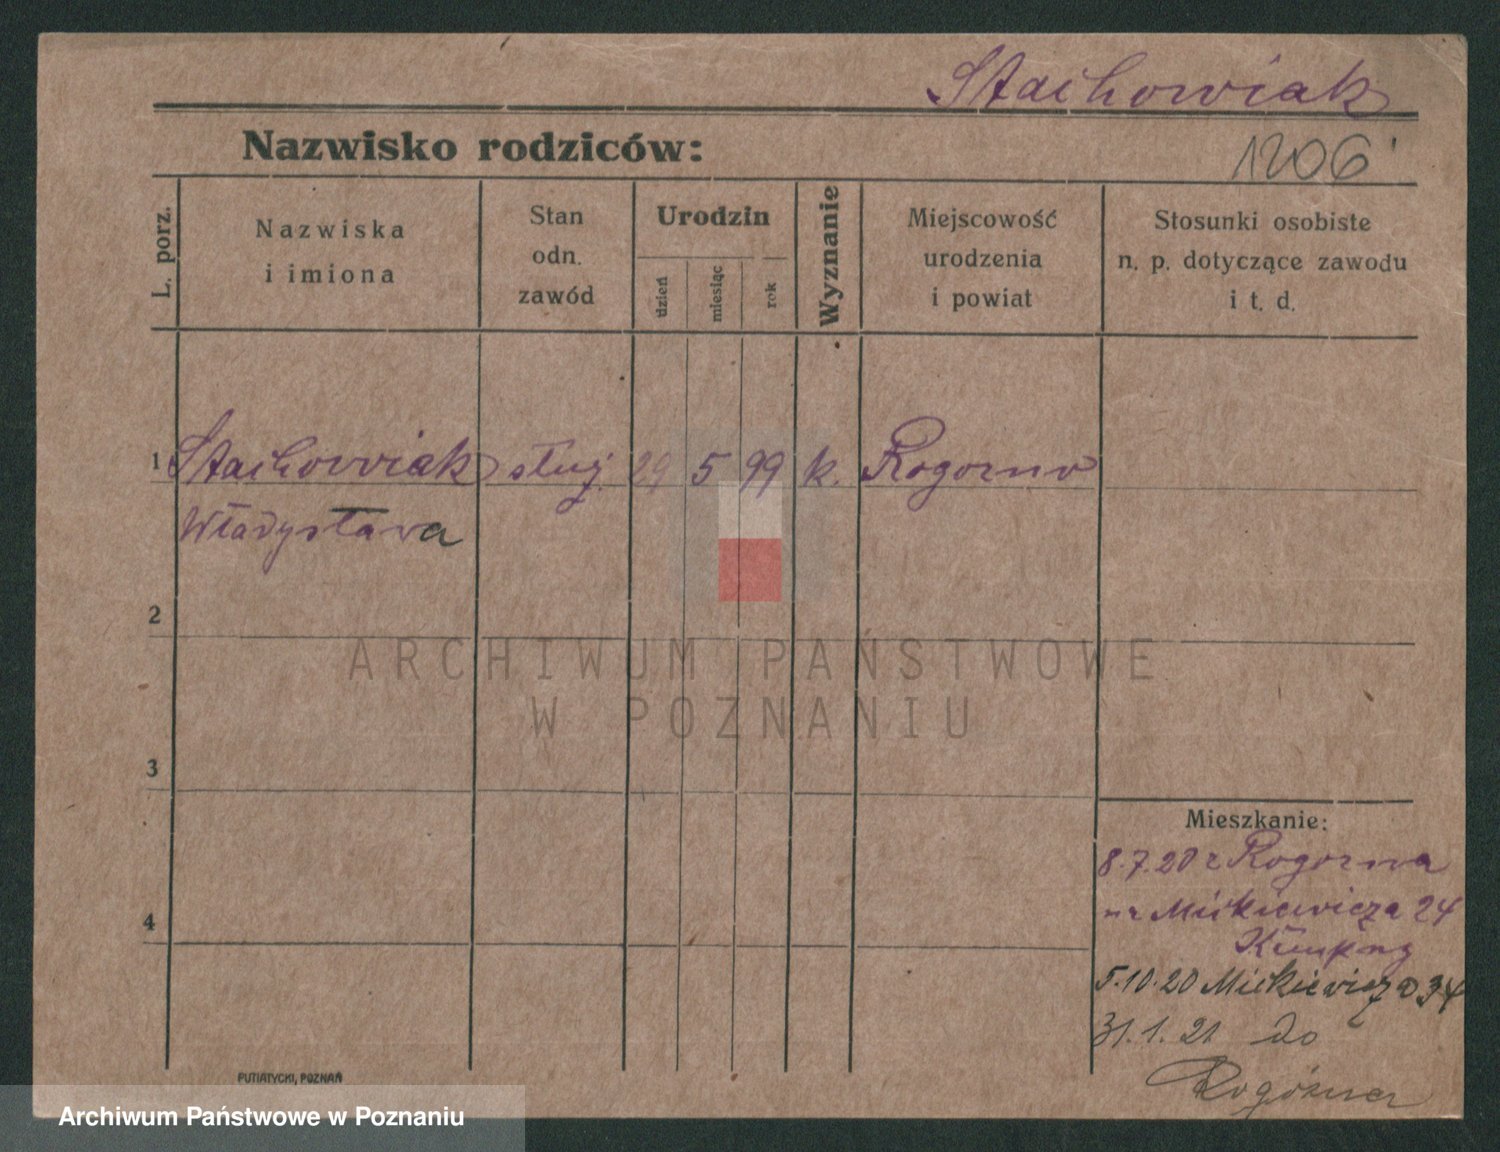 Stachowiak
Nazwisko rodziców:
1206
L. porz.
Nazwiska
i imiona
Stan
odn.
zawód
Urodzin
dzień
miesiąc
rok
Wyznanie
Miejscowość
urodzenia
i powiat
Stosunki osobiste
n. p. dotyczące zawodu
i t. d.
1 Stachowiak służ. 29 5 99 k. Rogozno
Władysława
2
ARCHIWUM PAŃSTWOWE
W POZNANIU
3
Mieszkanie:
8.7.20 z Rogozna
na Mickiewicza 24
4
5.10.20 Mickiewicza 34
31.1.21 do
Rogózna
PUTIATYCKI, POZNAŃ
Archiwum Państwowe w Poznaniu